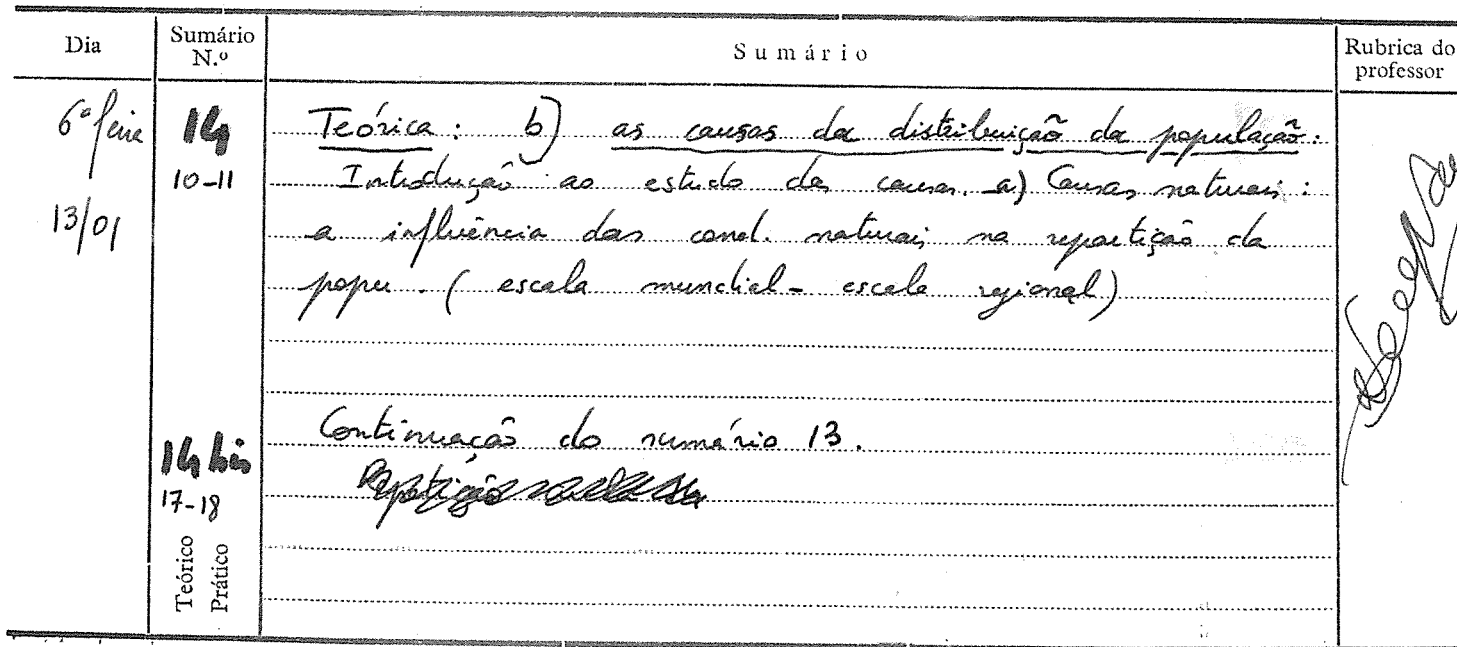 Dia
Sumário N.º
Sumário
Rubrica do professor
6ª feira
13/01
14
10-11
Teórica: b) as causas da distribuição da população:
Introdução ao estudo das causas. a) Causas naturais:
a influência das cond. naturais na repartição da
popu. (escala mundial - escala regional)
14 bis
17-18
Teórico
Prático
Continuação do sumário 13.